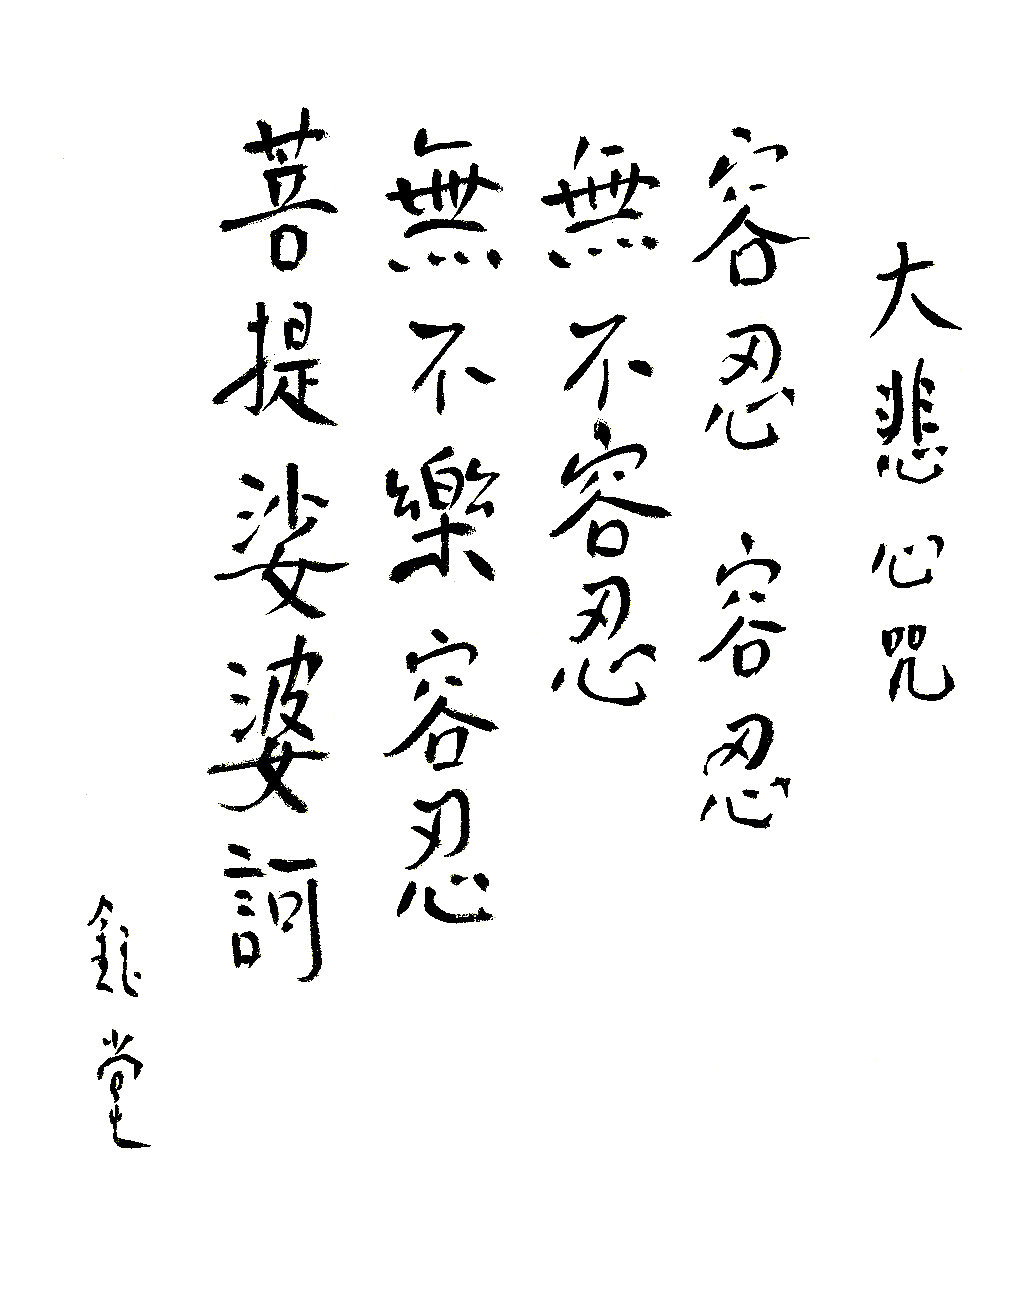 大悲心咒
容忍 容忍
無不容忍
無不樂容忍
菩提娑婆訶